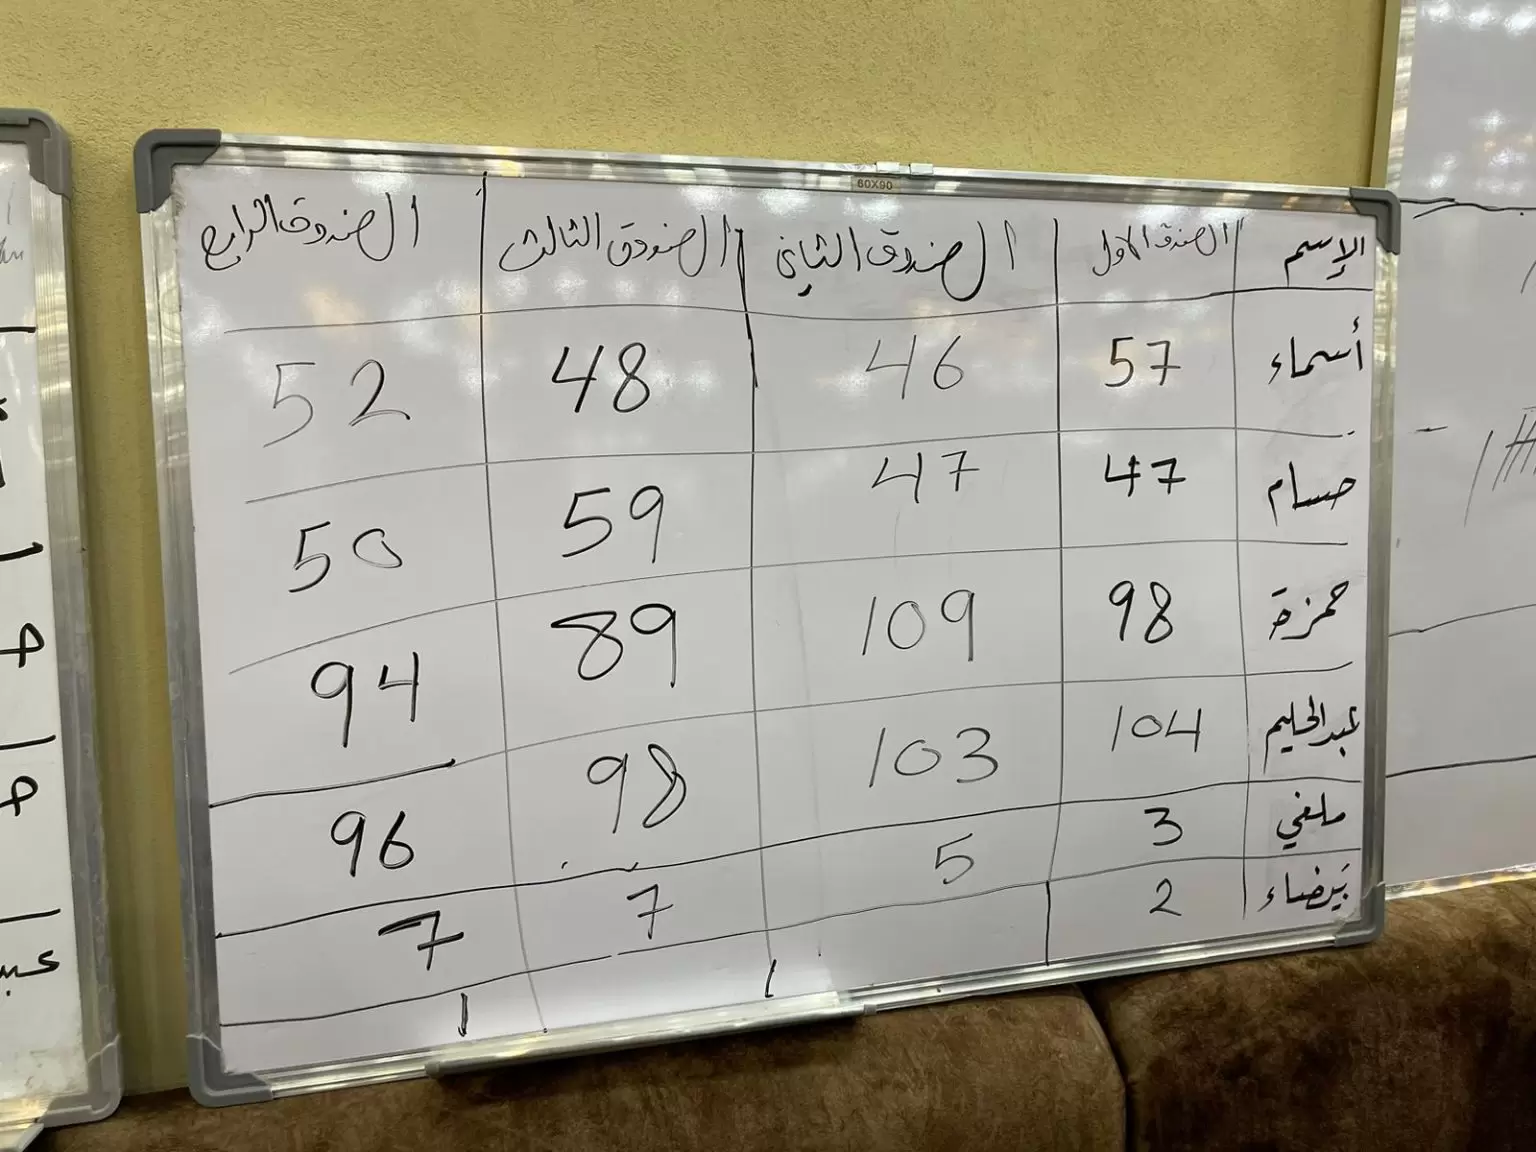 60X90
الإسم الصندوق الاول الصندوق الثاني الصندوق الثالث الصندوق الرابع
أسماء 57 46 48 52
حسام 47 47 59 50
حمزة 98 109 89 94
عبدالحليم 104 103 98 96
ملغي 3 5 7 7
بيضاء 2 1 1